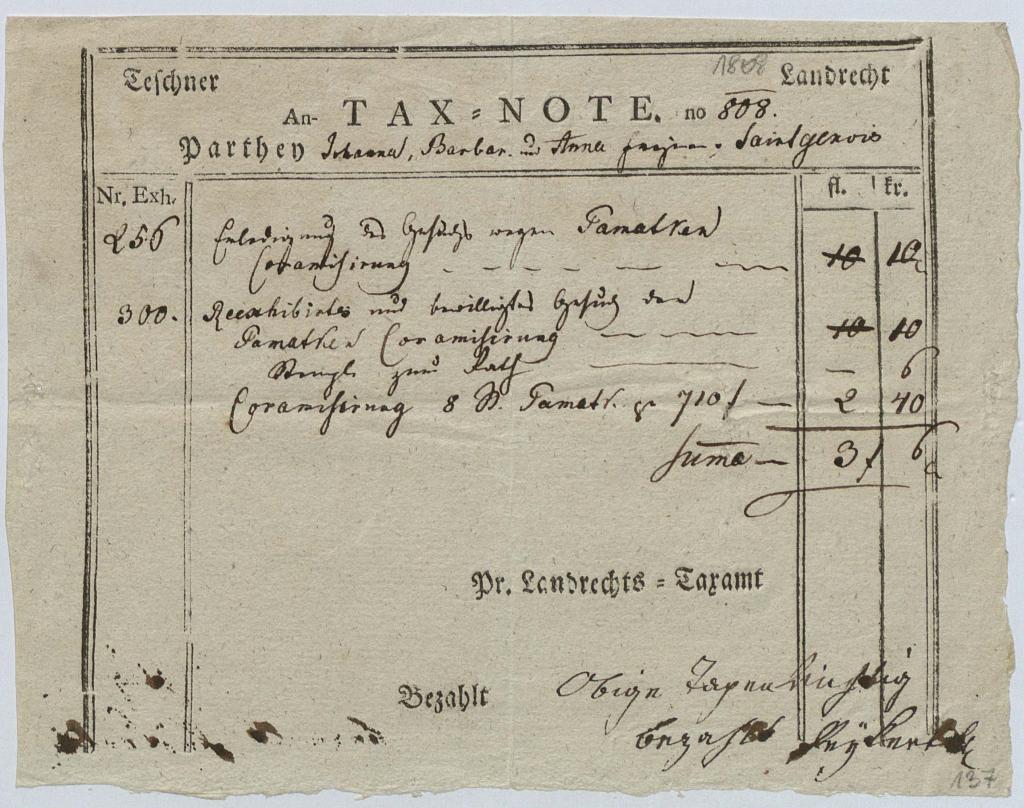 1808
Teschner Landrecht
An- TAX = NOTE. no 808.
Parthey Johanna, Barbar. und Anna Saintgenois
Nr. Exh. fl. kr.
256 Erledigung des Gesuchs wegen Pamatken
Coramisirung 10 10
300. Reexhibirtes und bewilligtes Gesuch der
Pamatken Coramisirung 10 10
zum Rath — 6
Coramisirung 8 St. Pamatk. 710 f 2 40
Suma 3 f 6
Pr. Landrechts = Taxamt
Bezahlt Obige Taxen richtig
bezahlt
137